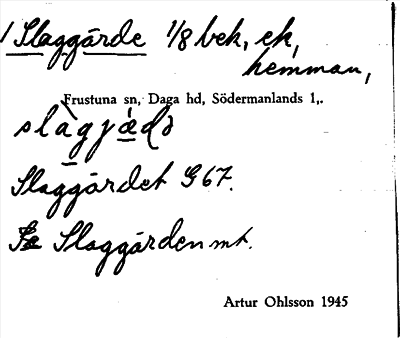 1 Slaggärde 1/8 bek, ek,
hemman,
Frustuna sn, Daga hd, Södermanlands l,.
slàgjǽdə
Slaggärdet G 67.
Se Slaggården mt.
Artur Ohlsson 1945